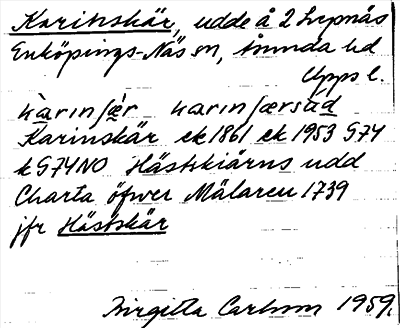 Karinskär, udde å 2 Lupnäs
Enköpings-Näs sn, Trunda hd
Upps l.
karinſęr karinſærsud
Karinskär ek 1861 ek 1953 G74
k G74NO Hästskiärns udd
Charta öfwer Mälaren 1739
jfr Hästskär
Birgitta Carlsson 1959.